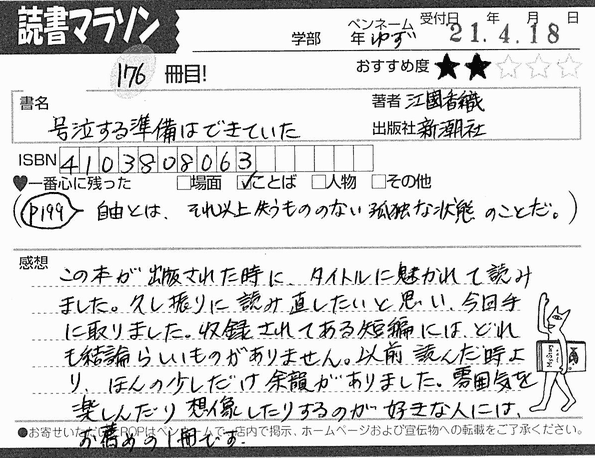 読書マラソン
学部 年 ペンネーム ゆず 受付日 年 月 日 21.4.18
176 冊目! おすすめ度 ★★☆☆☆
書名 号泣する準備はできていた
著者 江國香織
出版社 新潮社
ISBN 4103808063
♥一番心に残った □場面 ☑ことば □人物 □その他
(P199 自由とは、それ以上失うもののない孤独な状態のことだ。)
感想
この本が出版された時に、タイトルに魅かれて読み
ました。久し振りに読み直したいと思い、今回手
に取りました。収録されてある短編には、どれ
も結論らしいものがありません。以前読んだ時よ
り、ほんの少しだけ余韻がありました。雰囲気を
楽しんだり想像したりするのが好きな人には、
お薦めの1冊です。
●お寄せいただ POPはペンネームで 店内で掲示、ホームページおよび宣伝物への転載をご了承ください。